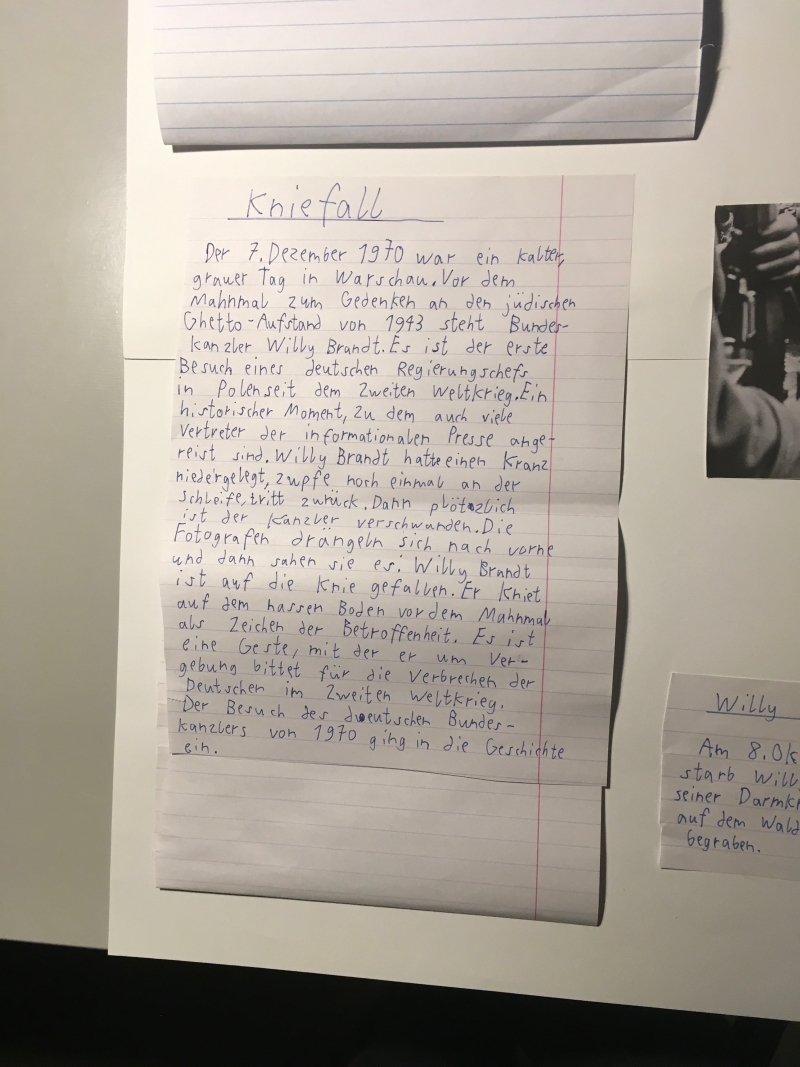 Kniefall
Der 7. Dezember 1970 war ein kalter,
grauer Tag in Warschau. Vor dem
Mahnmal zum Gedenken an den jüdischen
Ghetto-Aufstand von 1943 steht Bundes-
kanzler Willy Brandt. Es ist der erste
Besuch eines deutschen Regierungschefs
in Polen seit dem Zweiten Weltkrieg. Ein
historischer Moment, zu dem auch viele
Vertreter der informationalen Presse ange-
reist sind. Willy Brandt hatte einen Kranz
niedergelegt, zupfe noch einmal an der
Schleife, tritt zurück. Dann plötzlich
ist der Kanzler verschwunden. Die
Fotografen drängeln sich nach vorne
und dann sahen sie es: Willy Brandt
ist auf die Knie gefallen. Er kniet
auf dem nassen Boden vor dem Mahnmal
als Zeichen der Betroffenheit. Es ist
eine Geste, mit der er um Ver-
gebung bittet für die Verbrechen der
Deutschen im Zweiten Weltkrieg.
Der Besuch des deutschen Bundes-
kanzlers von 1970 ging in die Geschichte
ein.
Willy
Am 8. Ok
starb Will
seiner Darmkr
auf dem Wald
begraben.